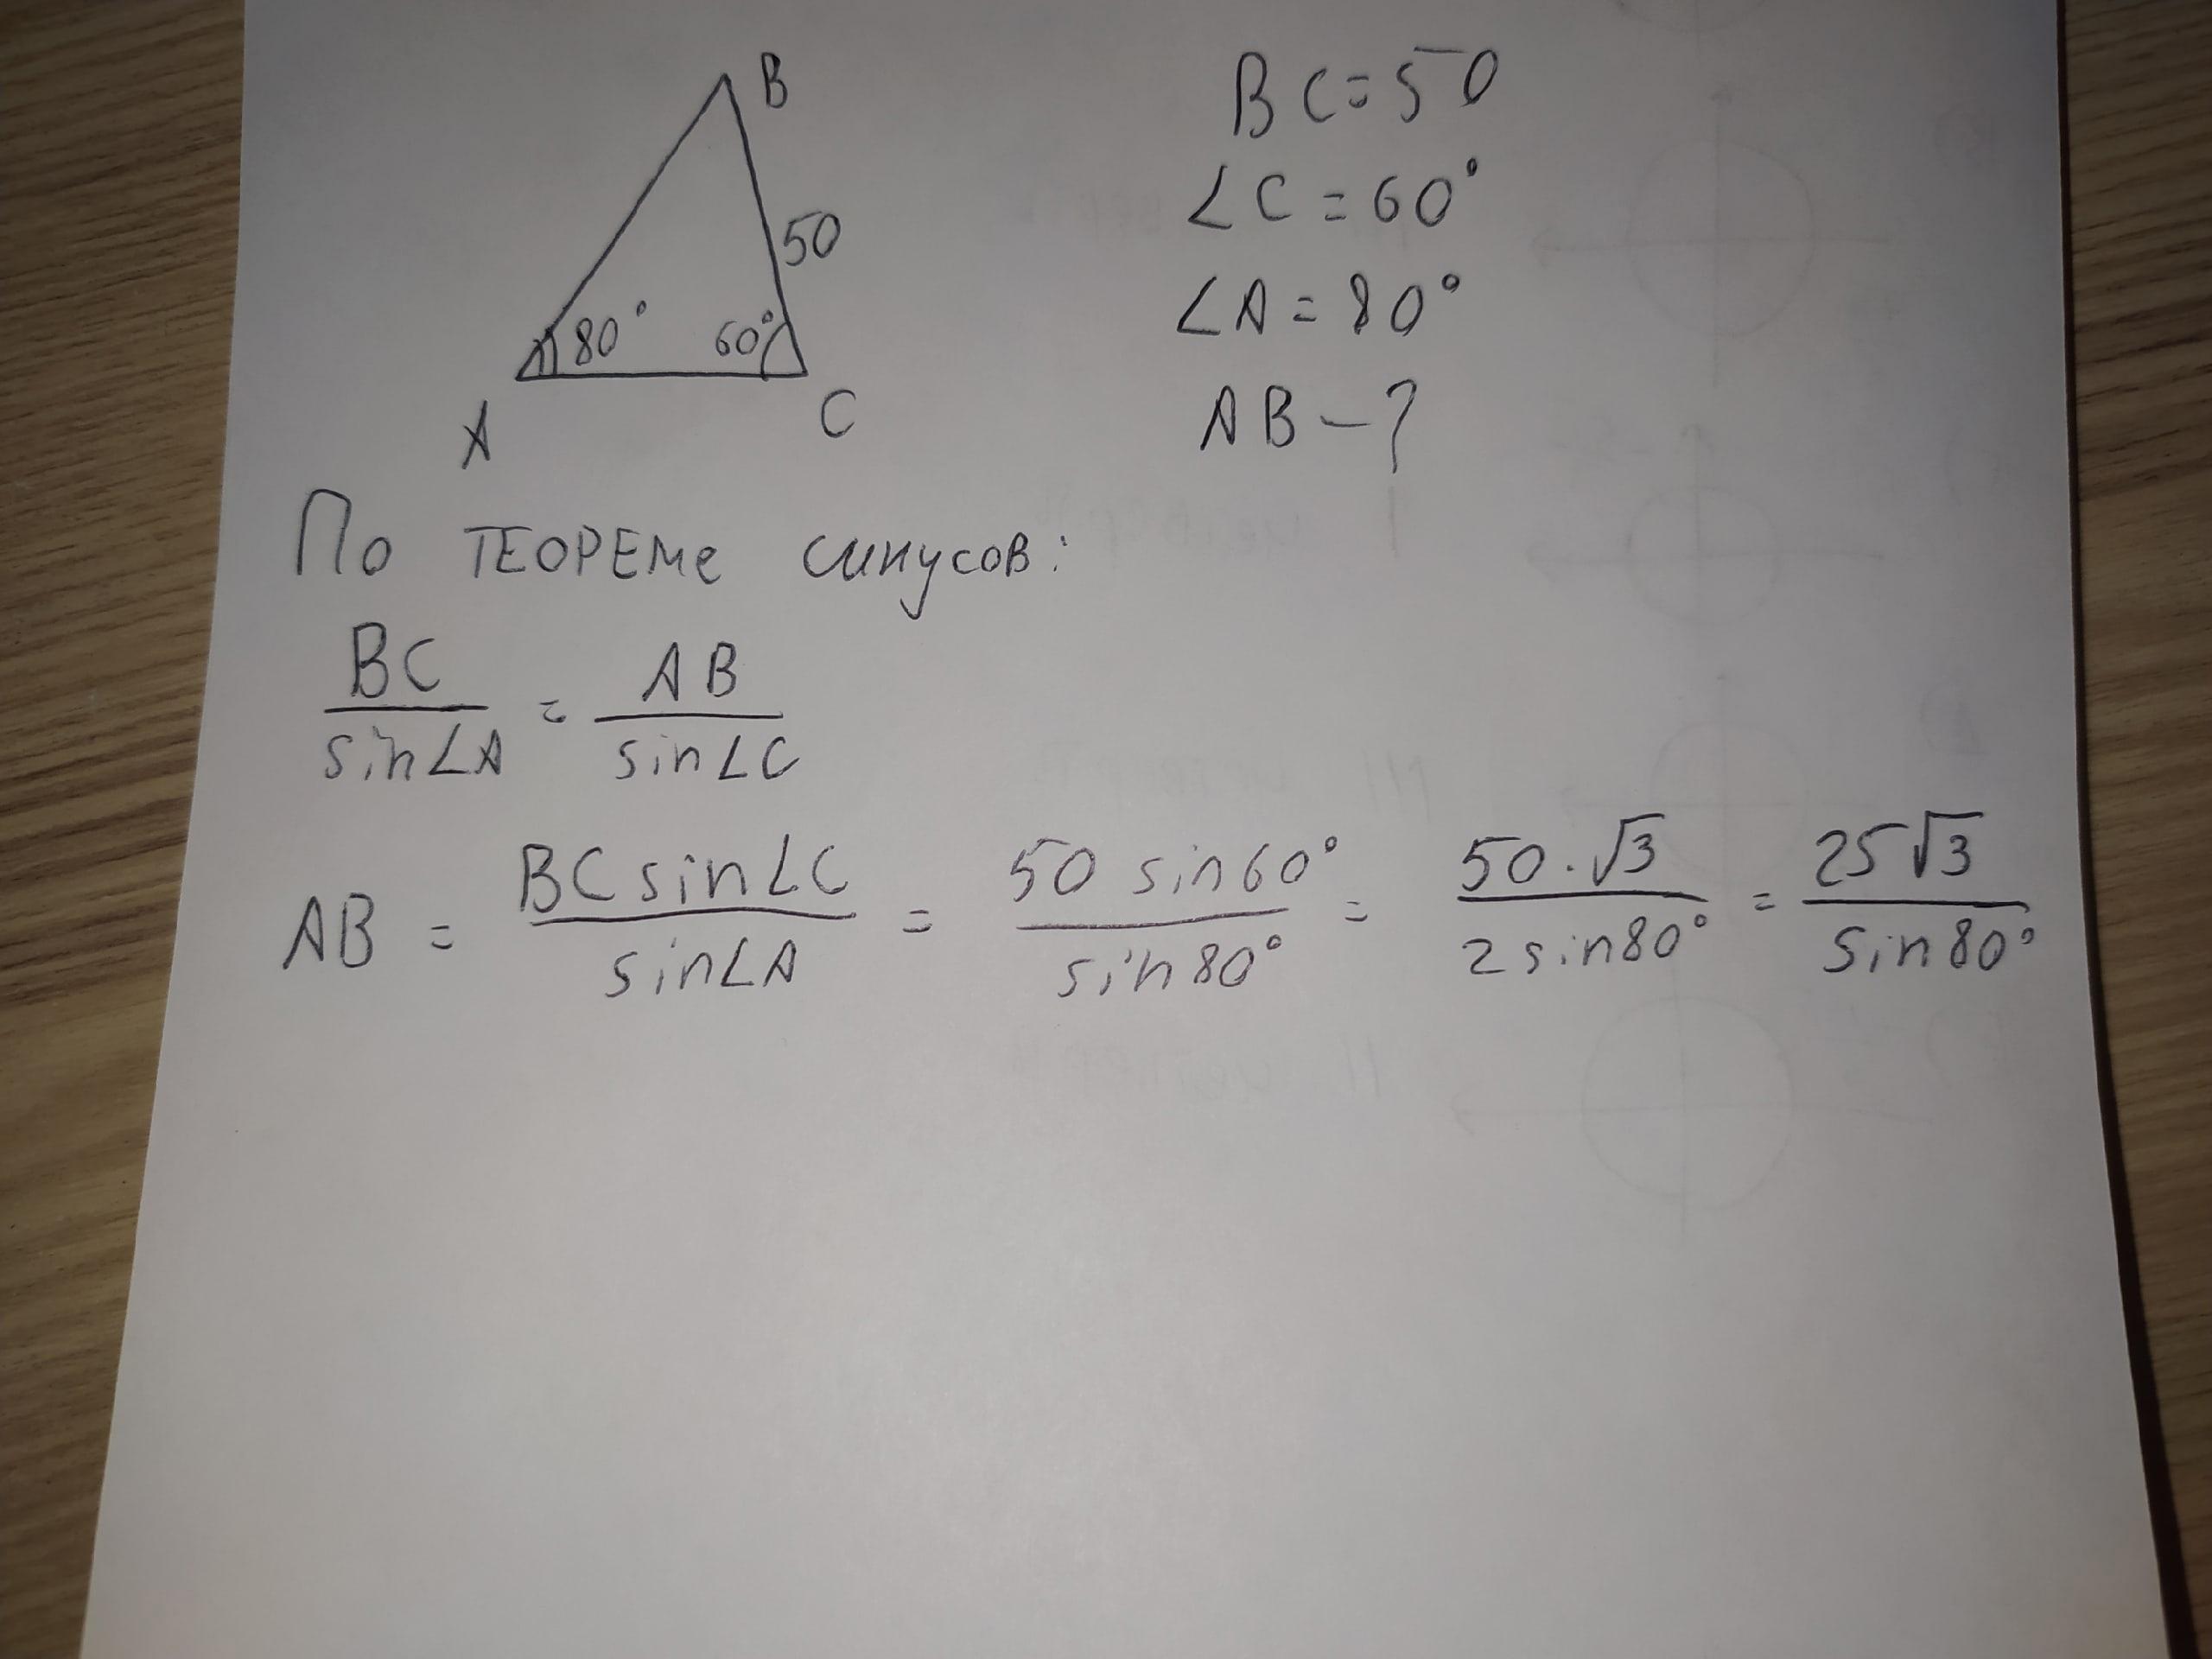 B
50
80° 60°
A C
BC = 50
∠C = 60°
∠A = 80°
AB – ?
По ТЕОРЕМе синусов:
BC/sin∠A = AB/sin∠C
AB = BC sin∠C/sin∠A = 50 sin60°/sin80° = 50·√3/2 sin80° = 25√3/sin80°